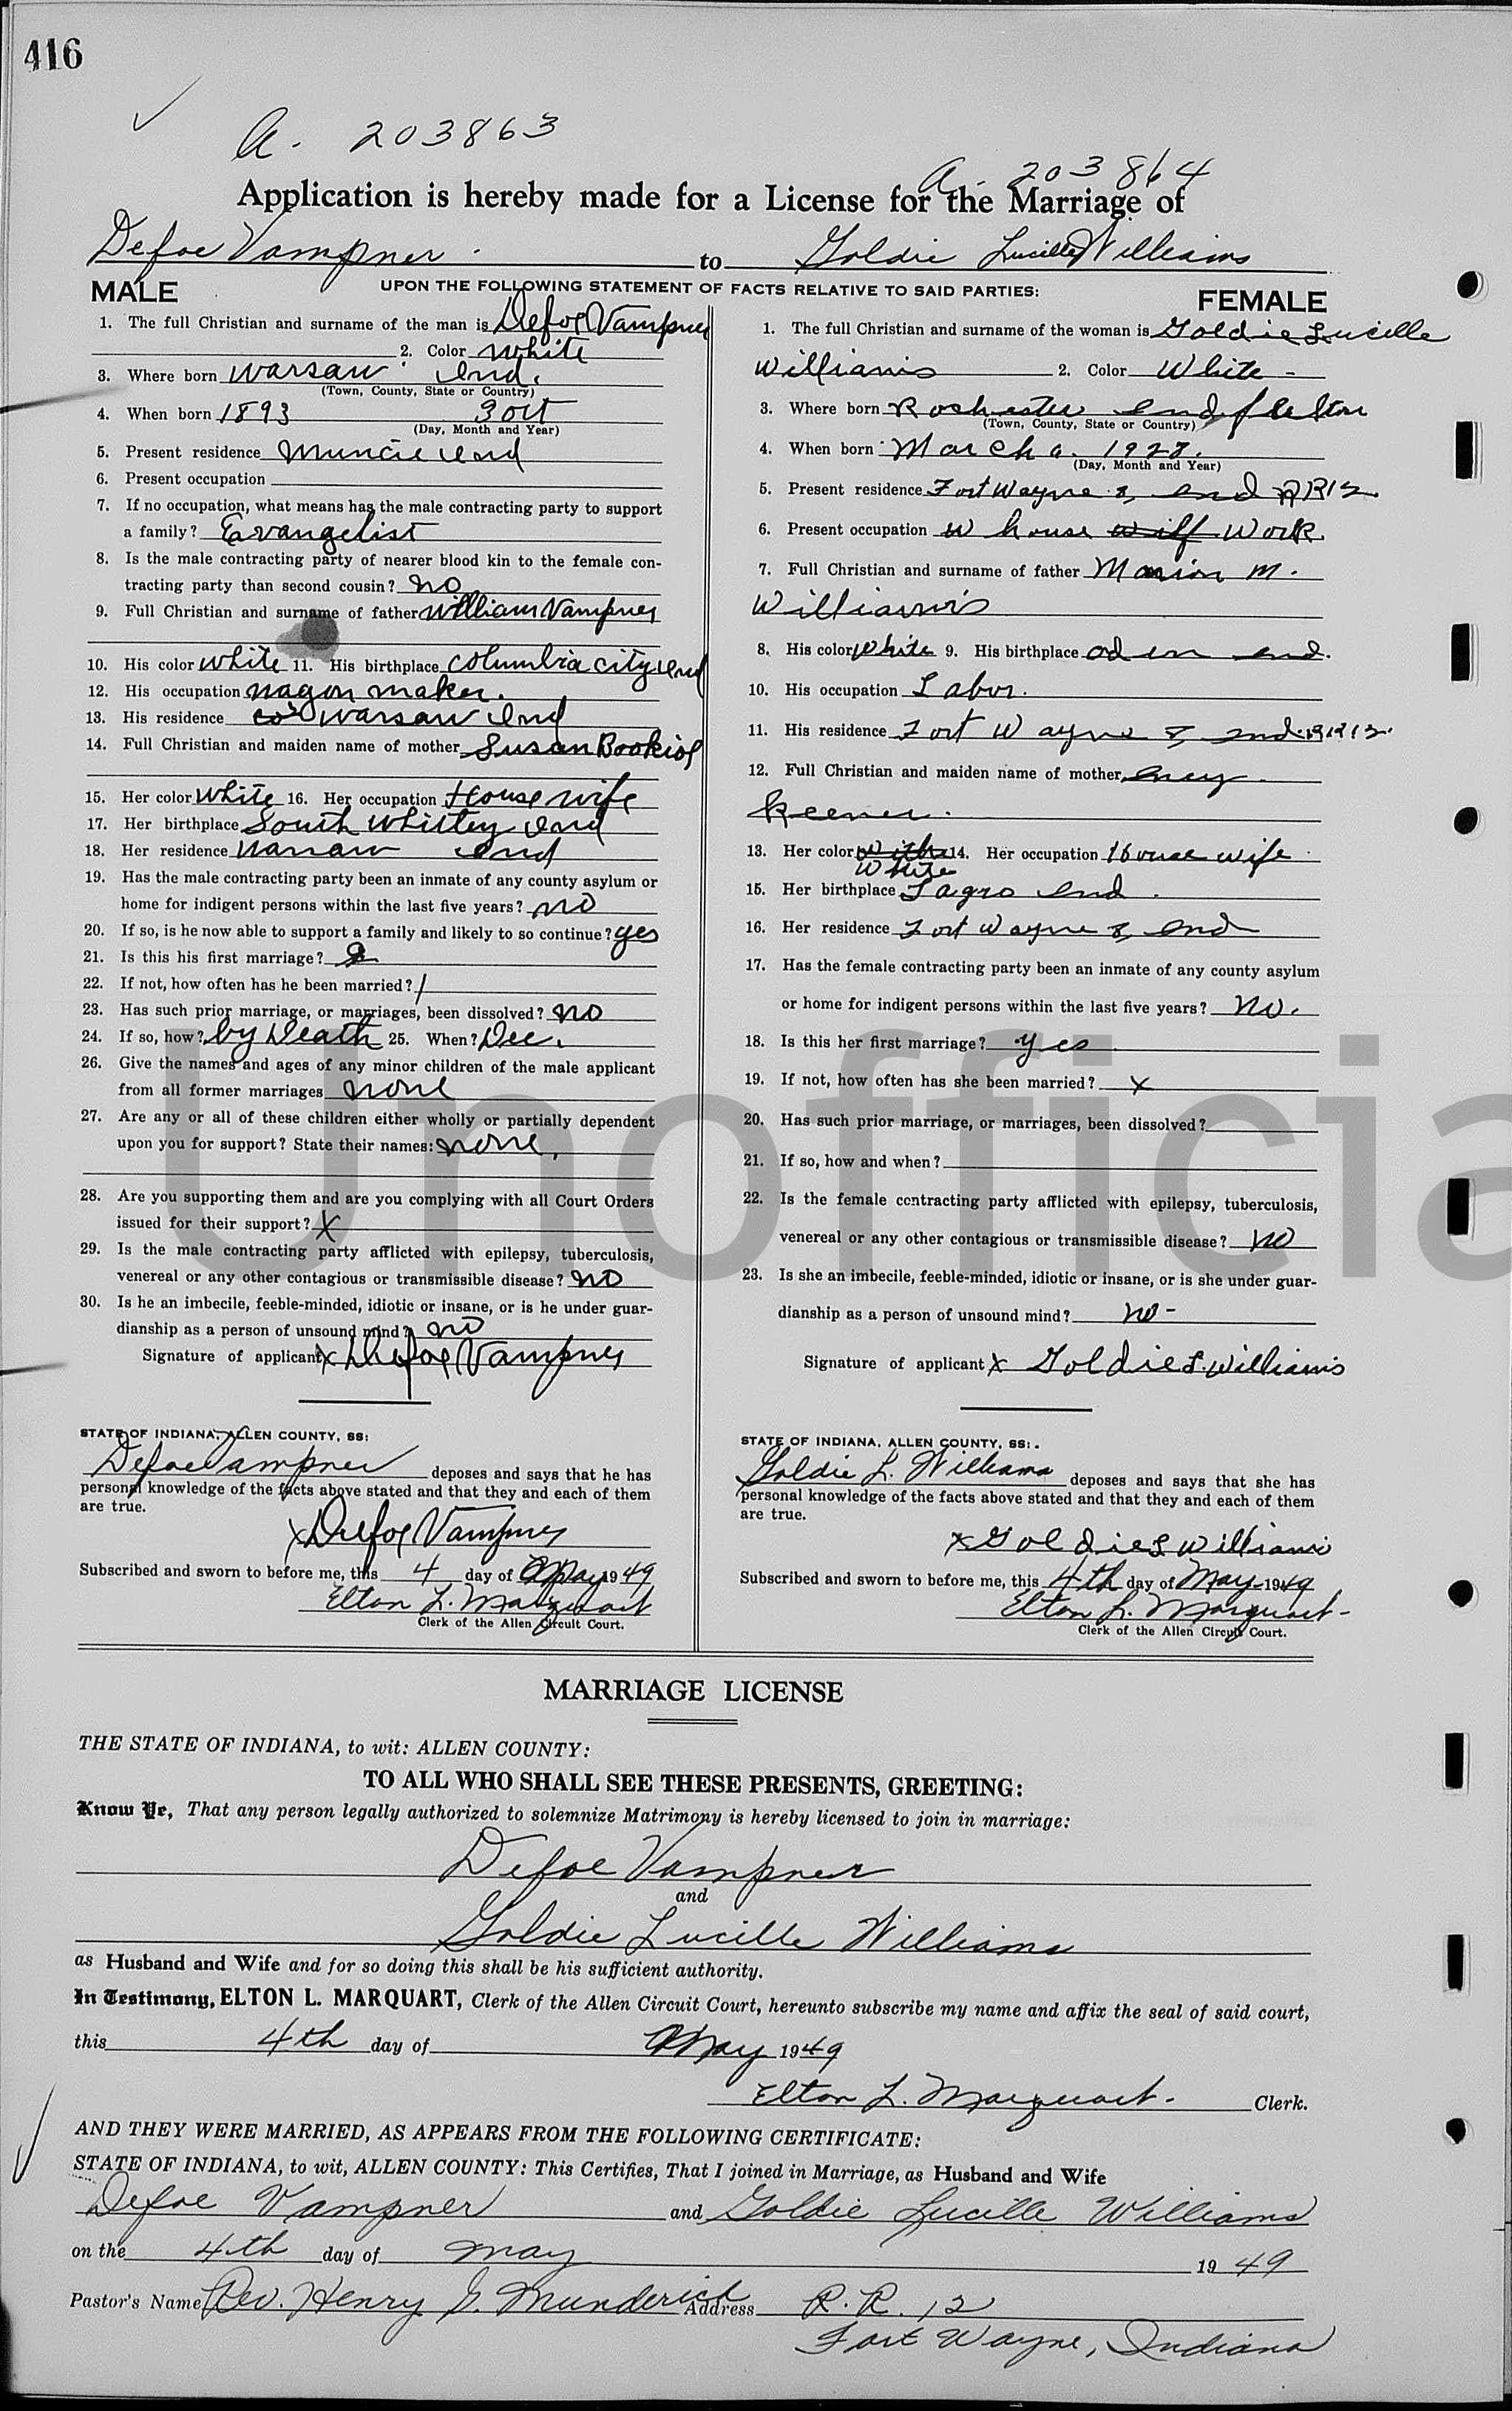 416
A. 203863
A. 203864
Application is hereby made for a License for the Marriage of
Defoe Vampner to Goldie Lucille Williams
UPON THE FOLLOWING STATEMENT OF FACTS RELATIVE TO SAID PARTIES:
MALE
1. The full Christian and surname of the man is Defoe Vampner
2. Color white
3. Where born warsaw Ind.
(Town, County, State or Country)
4. When born 1893 3 oct
(Day, Month and Year)
5. Present residence Muncie Ind
6. Present occupation
7. If no occupation, what means has the male contracting party to support
a family? Evangelist
8. Is the male contracting party of nearer blood kin to the female con-
tracting party than second cousin? no
9. Full Christian and surname of father William Vampner
10. His color white 11. His birthplace Columbia city Ind
12. His occupation wagon maker.
13. His residence warsaw Ind
14. Full Christian and maiden name of mother Susan
15. Her color White 16. Her occupation House wife
17. Her birthplace South Whitley Ind
18. Her residence Warsaw Ind
19. Has the male contracting party been an inmate of any county asylum or
home for indigent persons within the last five years? no
20. If so, is he now able to support a family and likely to so continue? yes
21. Is this his first marriage? 2
22. If not, how often has he been married? 1
23. Has such prior marriage, or marriages, been dissolved? no
24. If so, how? by Death 25. When? Dec.
26. Give the names and ages of any minor children of the male applicant
from all former marriages none
27. Are any or all of these children either wholly or partially dependent
upon you for support? State their names: none,
28. Are you supporting them and are you complying with all Court Orders
issued for their support? X
29. Is the male contracting party afflicted with epilepsy, tuberculosis,
venereal or any other contagious or transmissible disease? no
30. Is he an imbecile, feeble-minded, idiotic or insane, or is he under guar-
dianship as a person of unsound mind? no
Signature of applicant x Defoe Vampner
STATE OF INDIANA, ALLEN COUNTY, SS:
Defoe Vampner deposes and says that he has
personal knowledge of the facts above stated and that they and each of them
are true.
x Defoe Vampner
Subscribed and sworn to before me, this 4 day of May 1949
Elton L. Marquart
Clerk of the Allen Circuit Court.
FEMALE
1. The full Christian and surname of the woman is Goldie Lucille
Williams 2. Color White -
3. Where born Rochester Ind fulton
(Town, County, State or Country)
4. When born March 6. 1928.
(Day, Month and Year)
5. Present residence Fort Wayne 8, Ind RR12
6. Present occupation house work.
7. Full Christian and surname of father Marion M.
Williams
8. His color White 9. His birthplace Ind.
10. His occupation Labor.
11. His residence Fort Wayne 8, Ind. RR12.
12. Full Christian and maiden name of mother
Keener.
13. Her color White 14. Her occupation House wife
15. Her birthplace Lagro Ind.
16. Her residence Fort Wayne 8, Ind
17. Has the female contracting party been an inmate of any county asylum
or home for indigent persons within the last five years? no.
18. Is this her first marriage? yes
19. If not, how often has she been married? x
20. Has such prior marriage, or marriages, been dissolved?
21. If so, how and when?
22. Is the female contracting party afflicted with epilepsy, tuberculosis,
venereal or any other contagious or transmissible disease? no
23. Is she an imbecile, feeble-minded, idiotic or insane, or is she under guar-
dianship as a person of unsound mind? no -
Signature of applicant x Goldie L. Williams
STATE OF INDIANA, ALLEN COUNTY, SS:
Goldie L. Williams deposes and says that she has
personal knowledge of the facts above stated and that they and each of them
are true.
x Goldie L Williams
Subscribed and sworn to before me, this 4th day of May 1949
Elton L. Marquart
Clerk of the Allen Circuit Court.
Unofficia
MARRIAGE LICENSE
THE STATE OF INDIANA, to wit: ALLEN COUNTY:
TO ALL WHO SHALL SEE THESE PRESENTS, GREETING:
Know Ye, That any person legally authorized to solemnize Matrimony is hereby licensed to join in marriage:
Defoe Vampner
and
Goldie Lucille Williams
as Husband and Wife and for so doing this shall be his sufficient authority.
In Testimony, ELTON L. MARQUART, Clerk of the Allen Circuit Court, hereunto subscribe my name and affix the seal of said court,
this 4th day of May 1949
Elton L. Marquart. Clerk.
AND THEY WERE MARRIED, AS APPEARS FROM THE FOLLOWING CERTIFICATE:
STATE OF INDIANA, to wit, ALLEN COUNTY: This Certifies, That I joined in Marriage, as Husband and Wife
Defoe Vampner and Goldie Lucille Williams
on the 4th day of May 1949
Pastor's Name Rev. Henry G. Munderich Address R. R. 12
Fort Wayne, Indiana